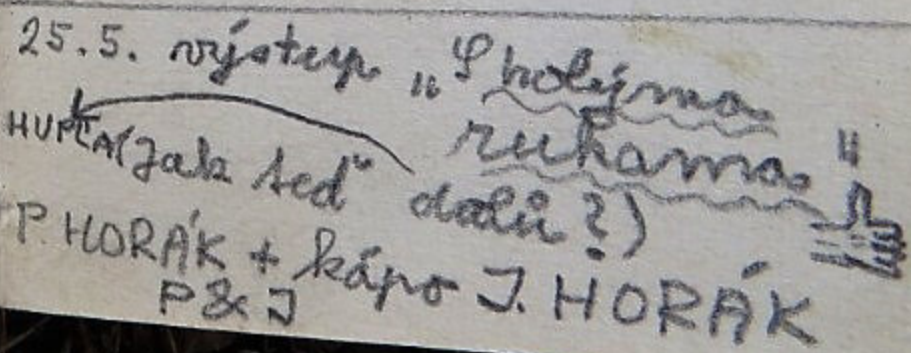 25.5. výstup „S holýma
rukama"
HUPLA (Jak teď dolů?)
P. HORÁK + kápo J. HORÁK
P & J